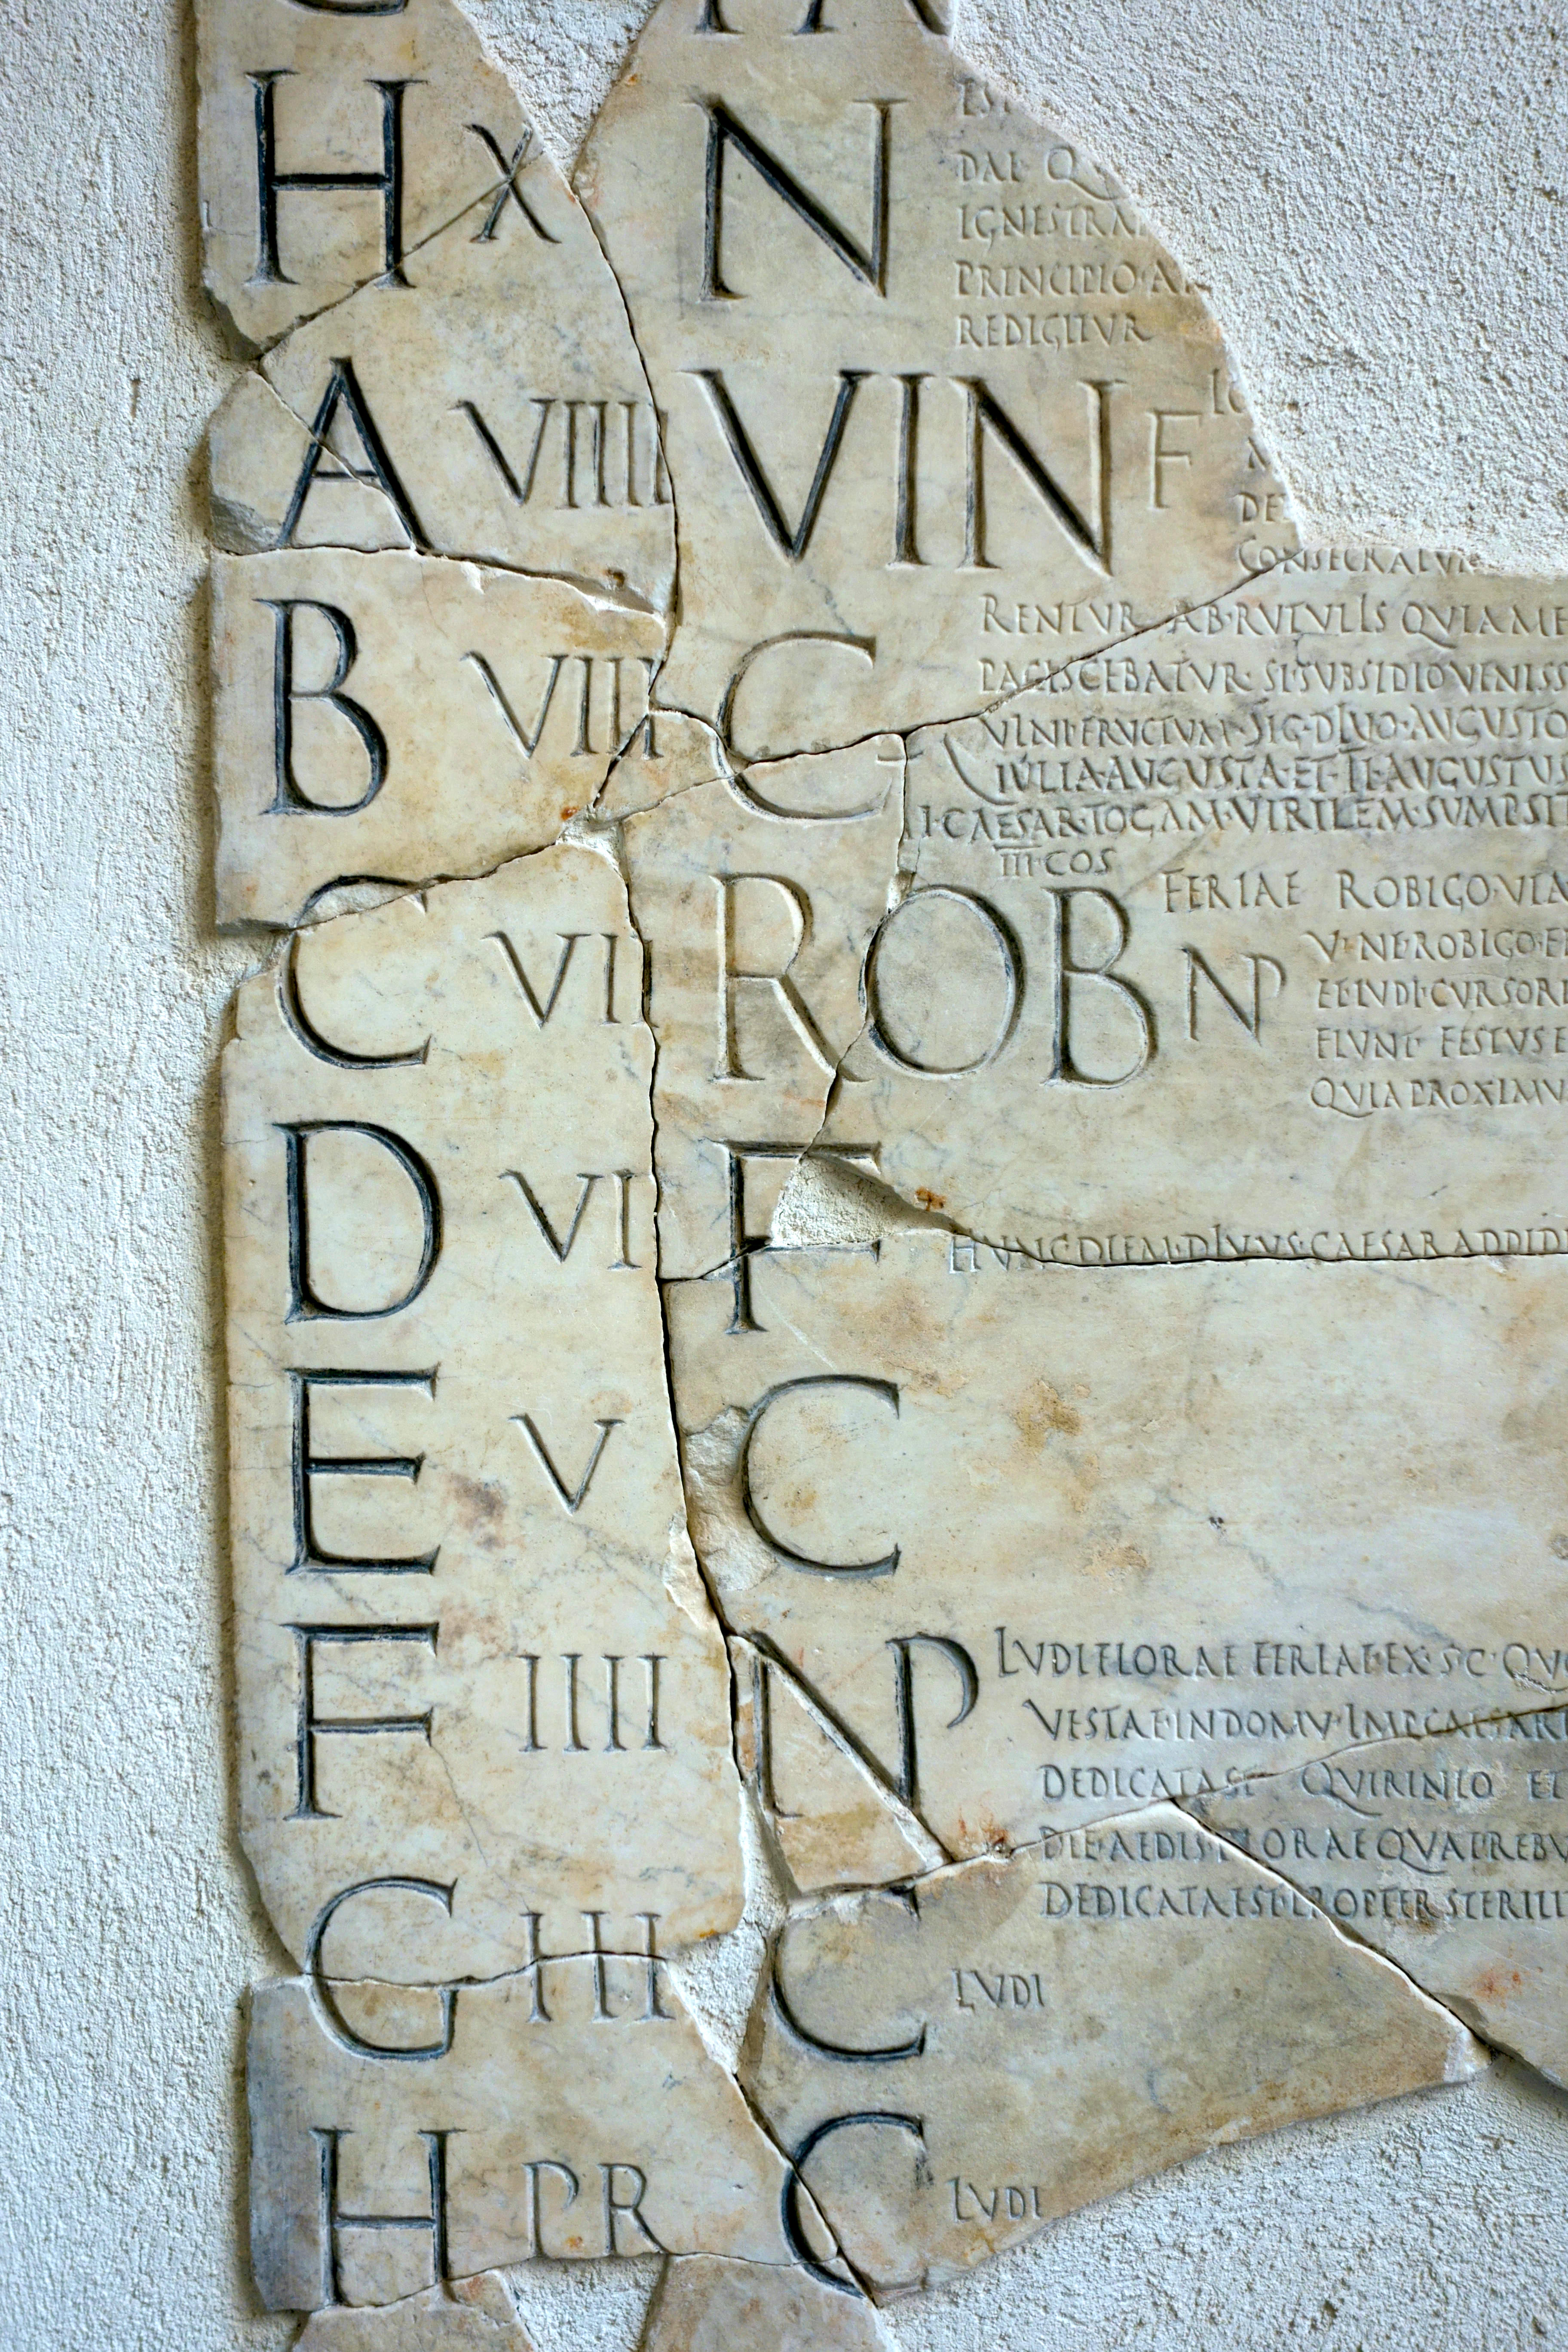 H X N
DAE
PRINCIPIO A
REDIGITVR
A VIIII VIN F
DE
CONSECRATVR
B VIII C RENTVR AB RVTVLIS QVIA ME
PACISCEBATVR SI SVBSIDIO VENISS
VINI FRVCTVM SIG DIVO AVGVSTO
IVLIA AVGVSTA ET TI AVGVSTVS
CAESAR TOGAM VIRILEM SVMPSIT
III COS
C VII ROB NP FERIAE ROBIGO VIA
ROBIGO
ET LVDI CVRSORI
FIVNT FESTVS E
QVIA PROXIMV
D VI F HVNC DIEM DIVVS CAESAR ADDIDI
E V C
F IIII NP LVDI FLORAE FERIAE EX S C QVO
VESTAE IN DOMV IMP CAESAR
DEDICATAST QVIRINIO ET
DIE AEDIS FLORAE QVAE REBV
DEDICATA EST PROPTER STERILI
G III C LVDI
H PR C LVDI